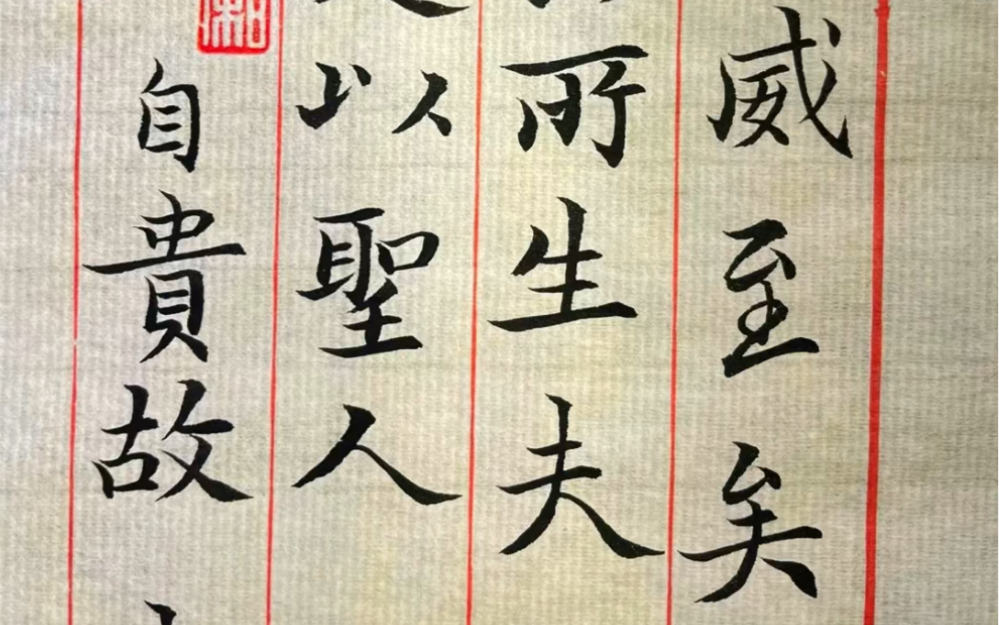 威至矣
所生夫
以聖人
自貴故